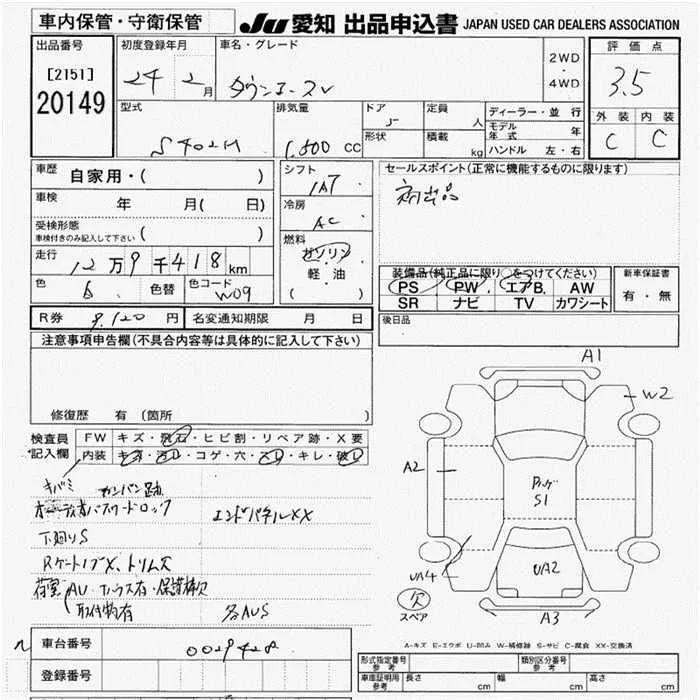 車内保管・守衛保管
JU 愛知 出品申込書 JAPAN USED CAR DEALERS ASSOCIATION
出品番号
[2151]
20149
初度登録年月
24 2月
車名・グレード
タウンエースV
2WD
・
4WD
評価点
3.5
外装 内装
C C
型式
S402M
排気量
1,500 CC
ドア
5
形状
定員
人
積載
kg
ディーラー・並行
モデル年式 年
ハンドル 左・右
車歴
自家用・( )
車検
年 月( 日)
受検形態
車検付きのみ記入して下さい ( )
走行
12万9千418km
色
色替
色コード
W09
シフト
IAT
冷房
AC
燃料
ガソリン
軽油
( )
セールスポイント(正常に機能するものに限ります)
初出品
装備品(純正品に限り○をつけてください)
PS PW エアB. AW
SR ナビ TV カワシート
新車保証書
有・無
後日品
R券 9,120円
名変通知期限 月 日
注意事項申告欄(不具合内容等は具体的に記入して下さい)
修復歴 有 (箇所 )
検査員
記入欄
FW キズ・飛石・ヒビ割・リペア跡・X要
内装 キズ・汚レ・コゲ・穴・スレ・キレ・破レ
キバミ カンバン跡
エンドパネルXX
下廻りS
取付物有
各AUS
A1
W2
A2
S1
UA2
UA4
A3
欠
スペア
A-キズ E-エクボ U-凹み W-補修跡 S-サビ C-腐食 XX-交換済
車台番号 0029428
登録番号
形式指定番号
参考
類別区分番号
参考
車庫証明用
参考
長さ cm
幅 cm
高さ cm